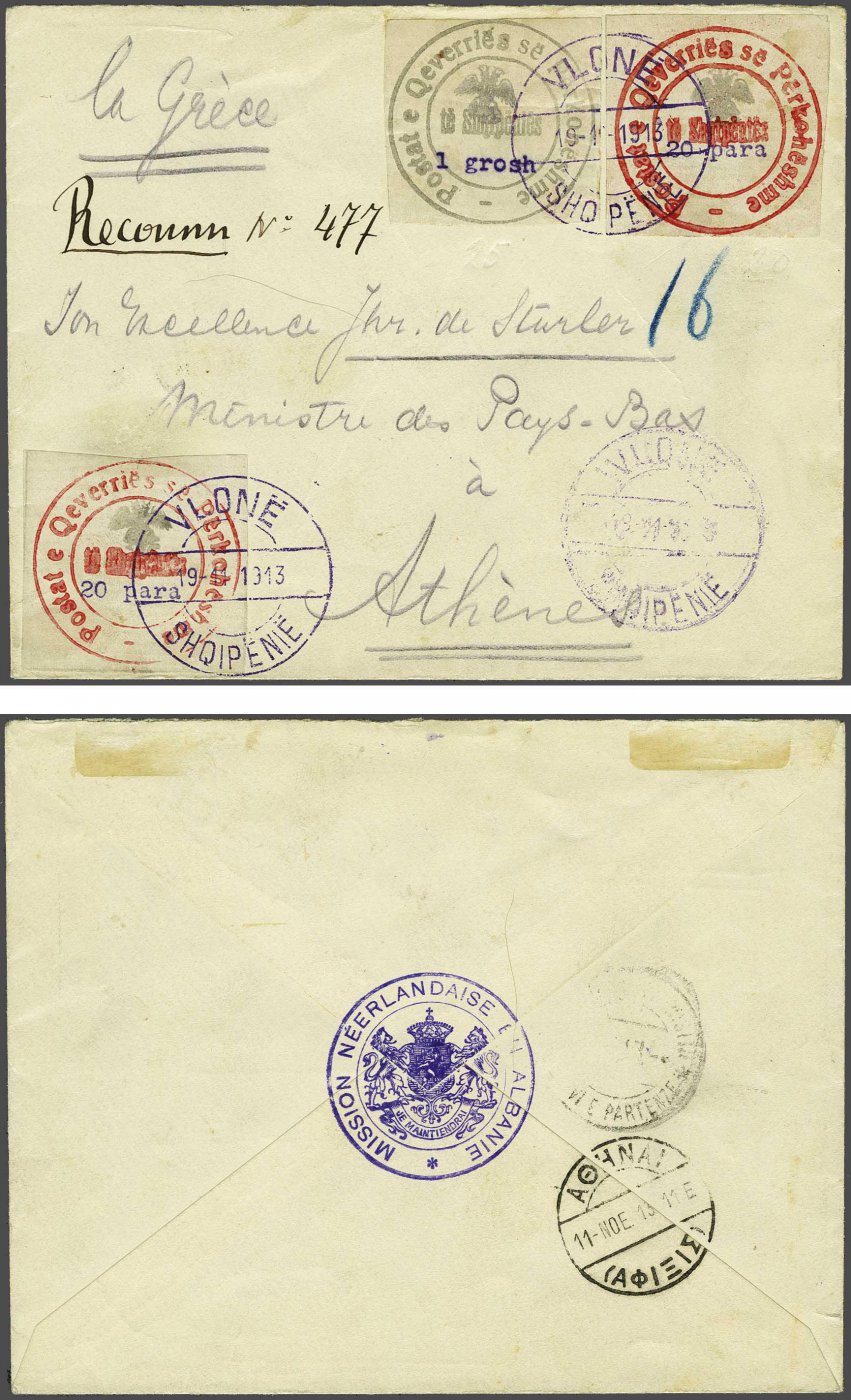 la Grèce
Postat e Qeverriës së Përkohëshme
të Shqipëniës
1 grosh
VLONË
19-11-1913
SHQIPËNIË
Postat e Qeverriës së Përkohëshme
të Shqipëniës
20 para
Recomm Nº 477
25
20
16
Son Excellence Jhr. de Sturler
Ministre des Pays-Bas
à
Athènes
Postat e Qeverriës së Përkohëshme
20 para
VLONË
19-11-1913
SHQIPËNIË
VLONË
SHQIPËNIË
MISSION NÉERLANDAISE EN ALBANIE *
JE MAINTIENDRAI
E PARTENZE
ΑΘΗΝΑΙ
11-ΝΟΕ 13 11 Ε
(ΑΦΙΞΙΣ)